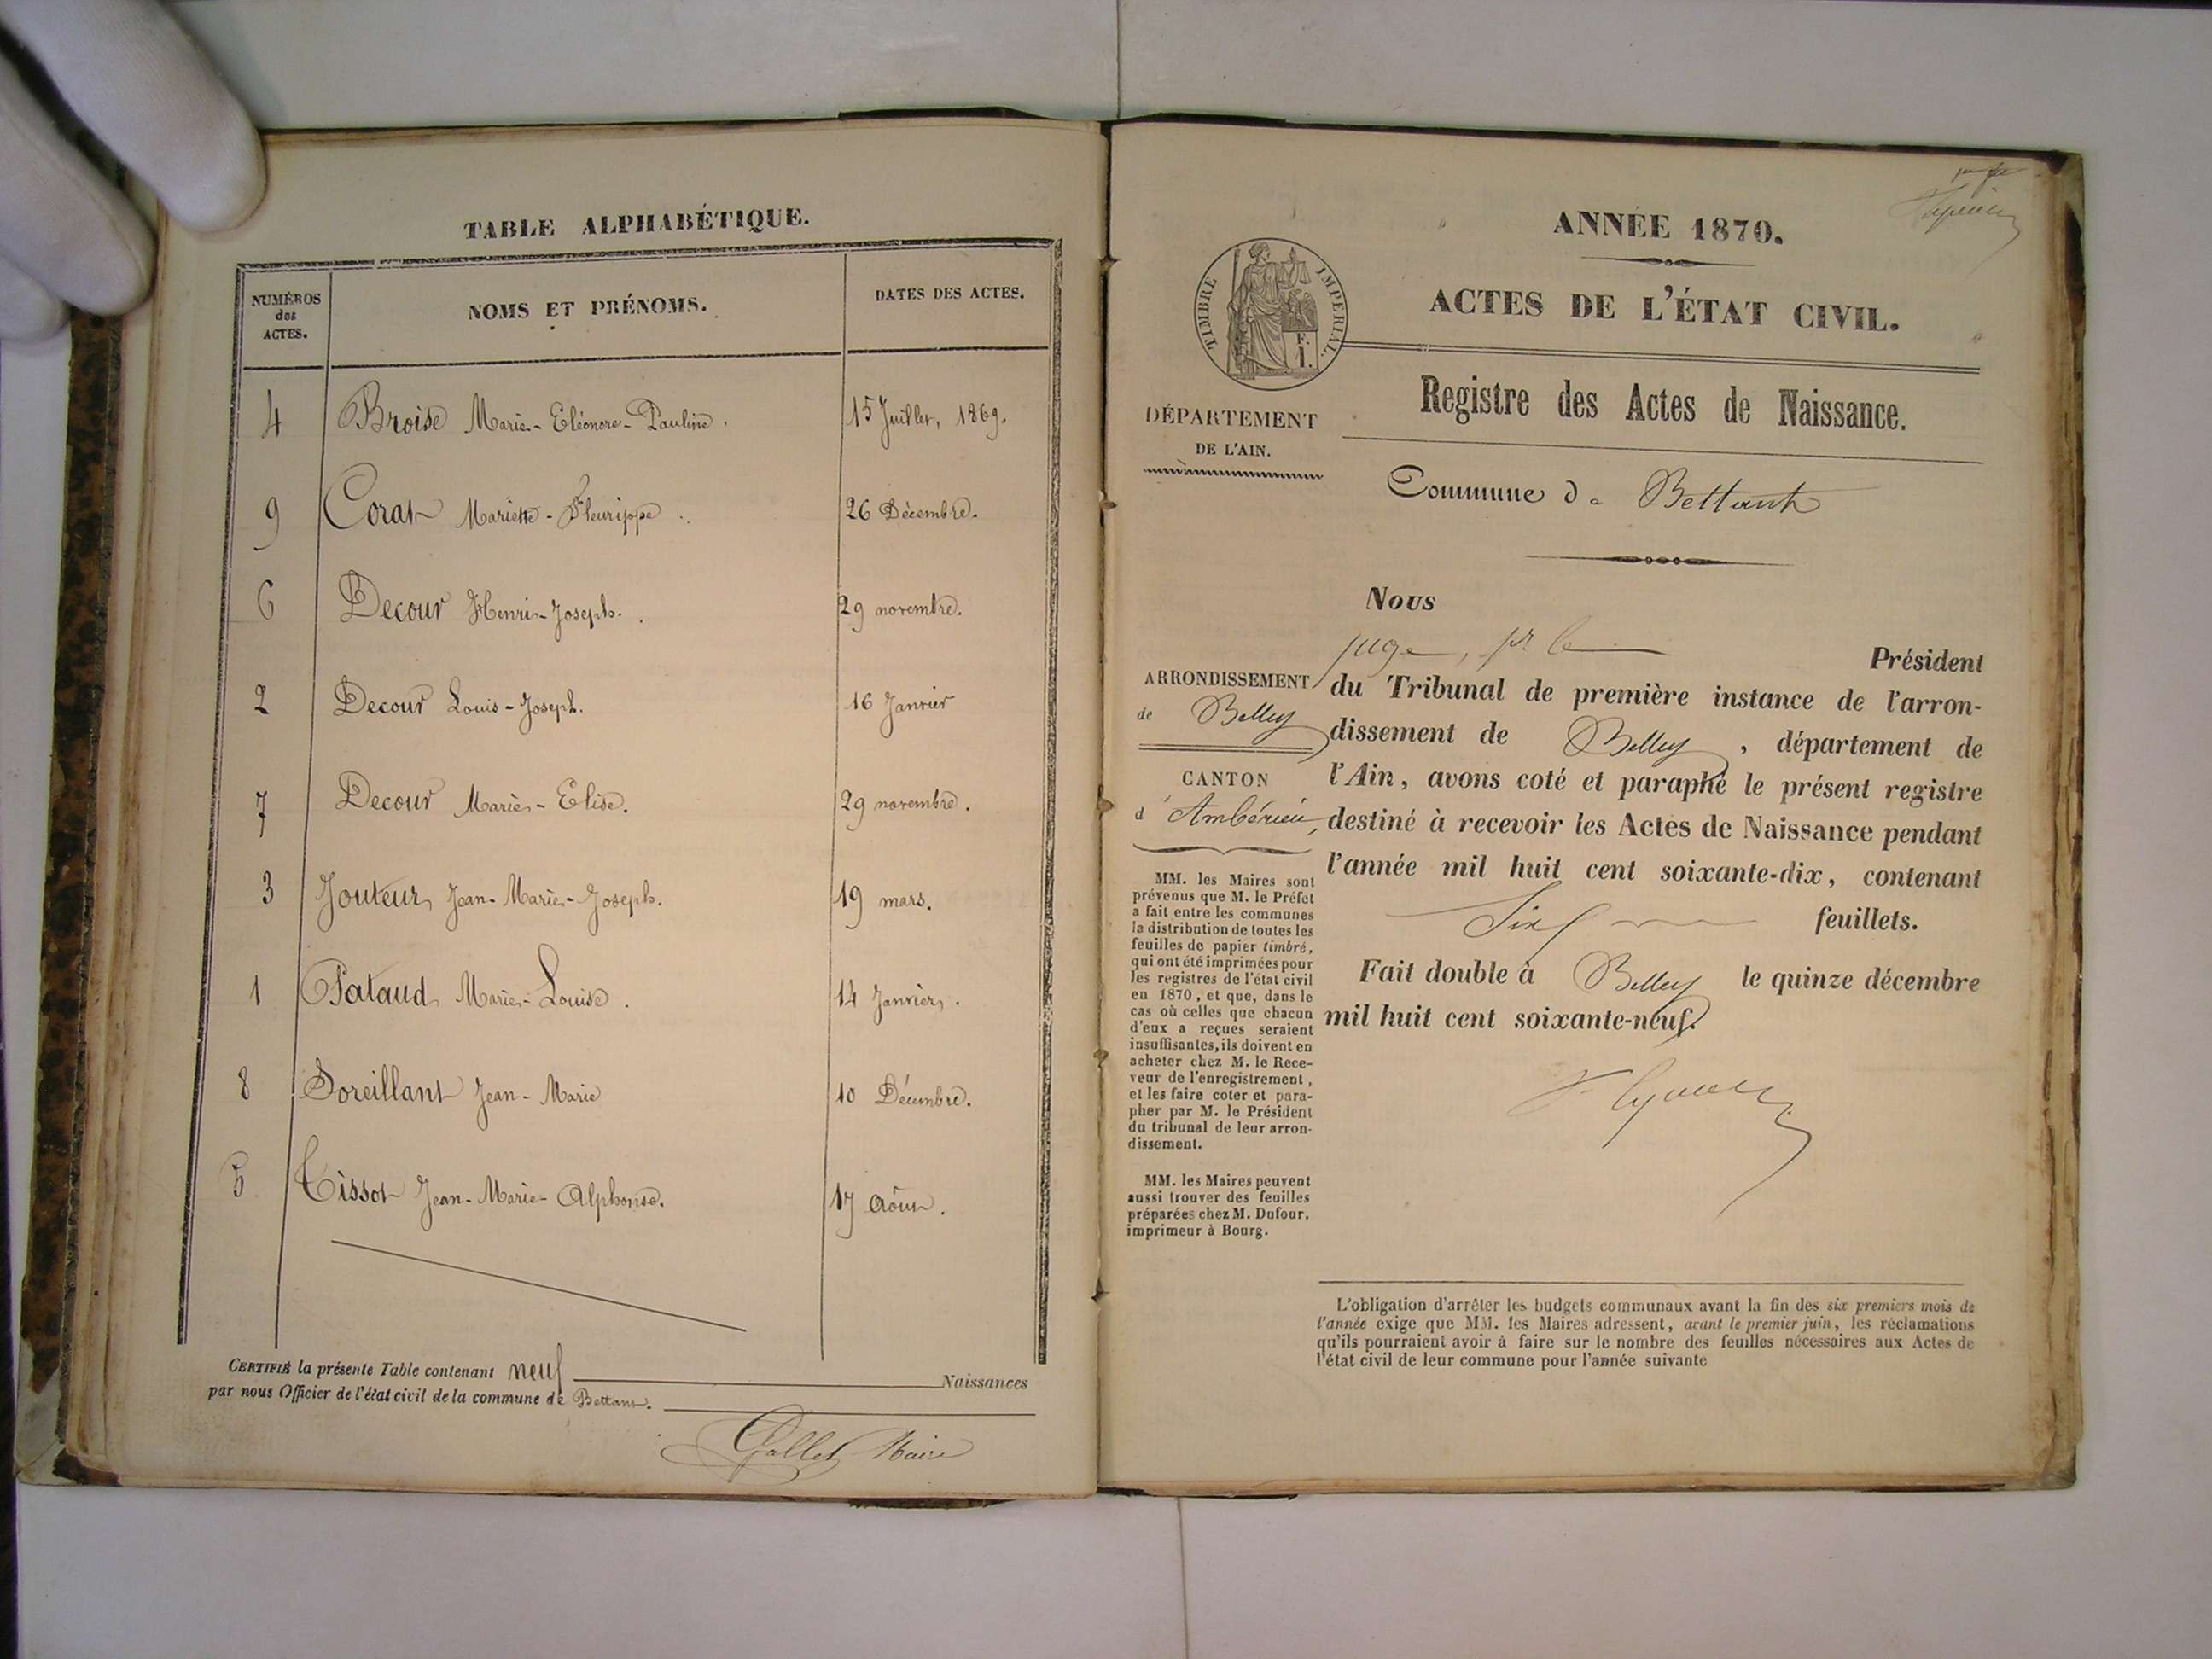 TABLE ALPHABÉTIQUE.
NUMÉROS des ACTES.
NOMS ET PRÉNOMS.
DATES DES ACTES.
4 Broise Marie-Eléonore-Pauline. 15 Juillet, 1869.
9 Corat Mariette-Fleurippe. 26 Décembre.
6 Decour Henri-Joseph. 29 novembre.
2 Decour Louis-Joseph. 16 Janvier
7 Decour Marie-Elise. 29 novembre.
3 Jouteur Jean-Marie-Joseph. 19 mars.
1 Pataud Marie-Louise. 14 Janvier.
8 Soreillant Jean-Marie 10 Décembre.
5 Tissot Jean-Marie-Alphonse. 17 Août.
CERTIFIÉ la présente Table contenant neuf Naissances
par nous Officier de l'état civil de la commune de Bettant.
Gallet Maire
ANNÉE 1870.
TIMBRE IMPERIAL.
F.
1.
ACTES DE L'ÉTAT CIVIL.
Registre des Actes de Naissance.
DÉPARTEMENT
DE L'AIN.
Commune de Bettant
ARRONDISSEMENT
de Belley
CANTON
d'Ambérieu,
MM. les Maires sont
prévenus que M. le Préfet
a fait entre les communes
la distribution de toutes les
feuilles de papier timbré,
qui ont été imprimées pour
les registres de l'état civil
en 1870, et que, dans le
cas où celles que chacun
d'eux a reçues seraient
insuffisantes, ils doivent en
acheter chez M. le Rece-
veur de l'enregistrement,
et les faire coter et para-
pher par M. le Président
du tribunal de leur arron-
dissement.
MM. les Maires peuvent
aussi trouver des feuilles
préparées chez M. Dufour,
imprimeur à Bourg.
Nous
juge, pr le Président
du Tribunal de première instance de l'arron-
dissement de Belley, département de
l'Ain, avons coté et paraphé le présent registre
destiné à recevoir les Actes de Naissance pendant
l'année mil huit cent soixante-dix, contenant
Six feuillets.
Fait double à Belley le quinze décembre
mil huit cent soixante-neuf.
L'obligation d'arrêter les budgets communaux avant la fin des six premiers mois de
l'année exige que MM. les Maires adressent, avant le premier juin, les réclamations
qu'ils pourraient avoir à faire sur le nombre des feuilles nécessaires aux Actes de
l'état civil de leur commune pour l'année suivante